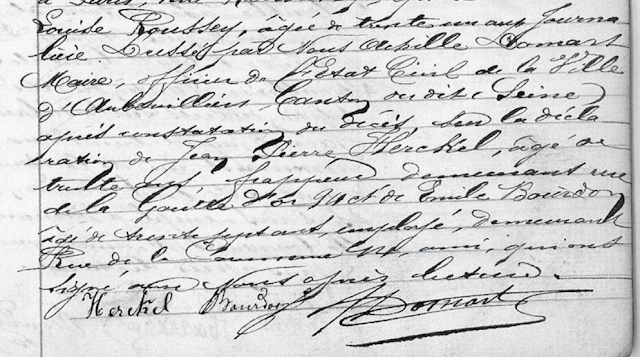 Louise Roussey, âgée de trente un ans, Journa
lière Dressé par Nous Achille Domart
Maire, officier de l'Etat Civil de la Ville
d'Aubervilliers, Canton du dit, Seine
après constatation du décès sur la décla
ration de Jean Pierre Herckel, âgé de
trente ans, frappeur demeurant rue
de la Goutte d'or 94 et de Emile Bourdon
âgé de trente sept ans, employé, demeurant
Rue de la Commune 14, ami, qui ont
signé avec Nous après lecture.
Herckel Bourdon Domart